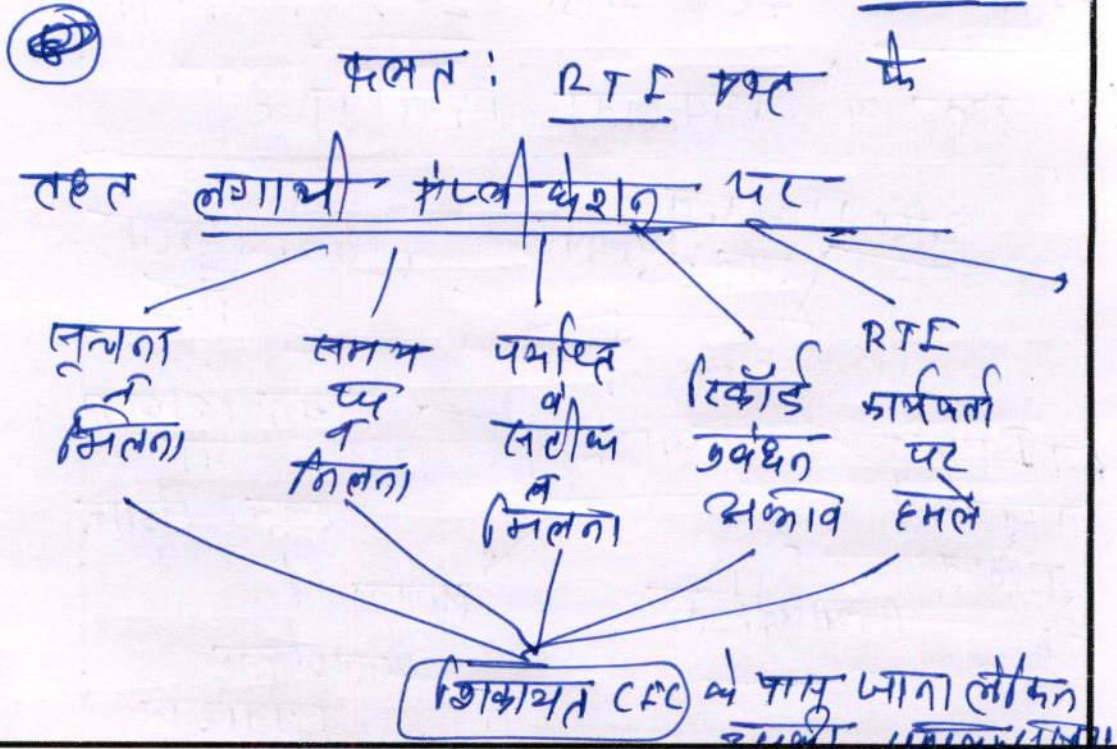 : RTI के
तहत लगायी एप्लीकेशन पर
सूचना न मिलना
समय पर न मिलना
पर्याप्त व सटीक न मिलना
रिकॉर्ड प्रबंधन अभाव
RTI कार्यकर्ता पर हमले
शिकायत CIC के पास जाना लेकिन